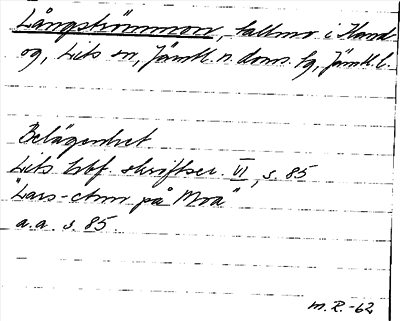 Långströmmon, kallmr i Hand-
og, Lits sn, Jämtl. n. doms. lg, Jämtl. l.
Belägenhet
Lits hbf. skriftser. VI, s. 85
"Lars-ctnr på Moa"
a.a. s. 85.
M.R.-62